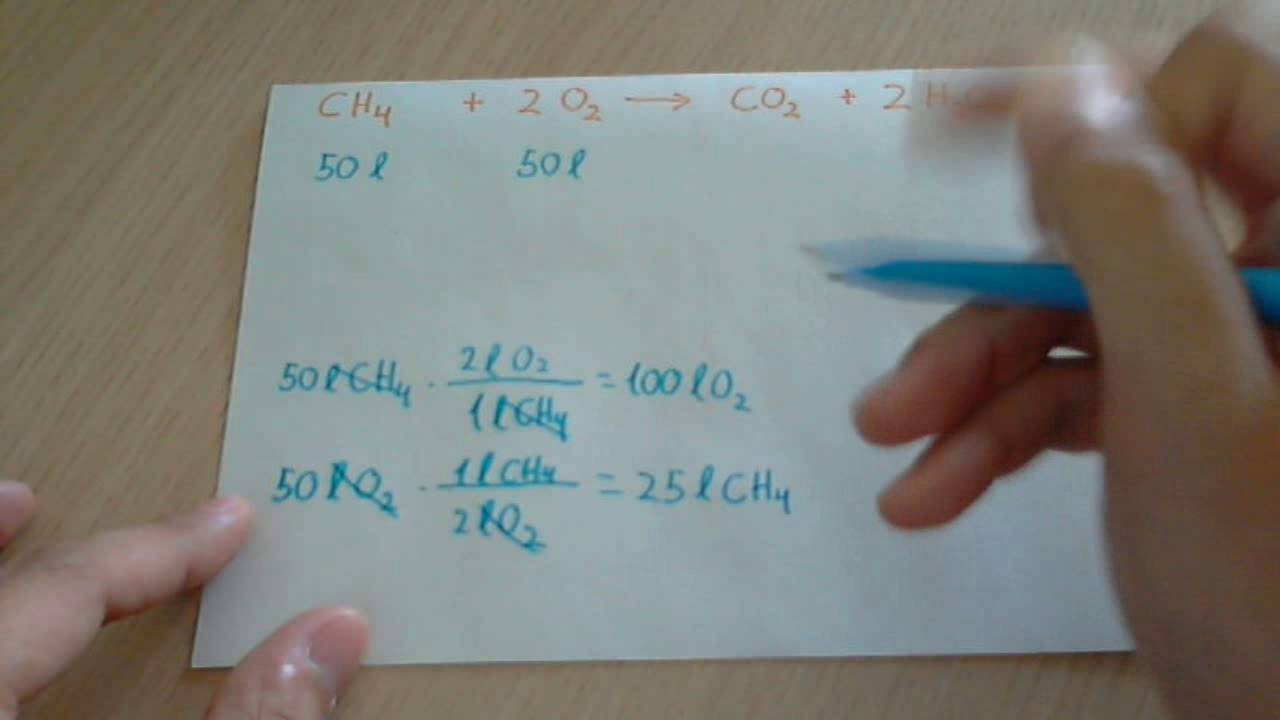 CH₄ + 2 O₂ → CO₂ + 2 H₂
50 l 50 l
50 l CH₄ · 2 l O₂ / 1 l CH₄ = 100 l O₂
50 l O₂ · 1 l CH₄ / 2 l O₂ = 25 l CH₄